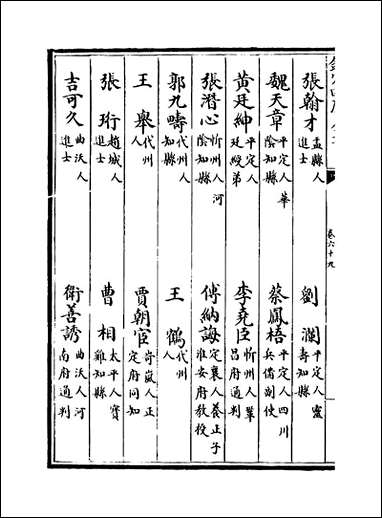 卷六十九
張翰才 盂縣人進士 劉瀾 平定人靈壽知縣
魏天章 平定人華陰知縣 蔡鳳梧 平定人四川兵備副使
黃廷紳 平定人廷綬弟 李堯臣 忻州人鞏昌府通判
張潛心 忻州人河陰知縣 傅納誨 定襄人養正子淮安府教授
郭九疇 代州人知縣 王鶴 代州人
王舉 代州人 賈朝宦 岢嵐人正定府同知
張珩 趙城人進士 曹相 太平人寶雞知縣
吉可久 曲沃人進士 衛善誘 曲沃人河南府通判